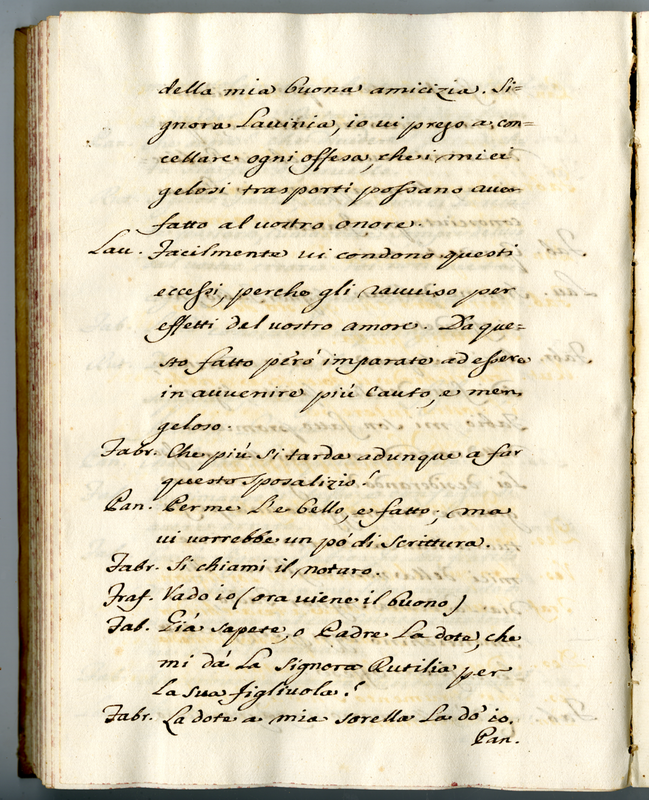 della mia buona amicizia. Si=
gnora Lavinia, io vi prego a can=
cellare ogni offesa, che i miei
gelosi trasporti possano aver
fatto al vostro onore.
Lav. Facilmente vi condono questi
eccessi, perche gli ravviso per
effetti del vostro amore. Da que=
sto fatto però imparate ad essere
in avvenire più cauto, e men
geloso.
Fabr. Che più si tarda adunque a far
questo sposalizio?
Pan. Per me l'e bello, e fatto; ma
vi vorrebbe un pò di scrittura.
Fabr. Si chiami il notaro.
Traf. Vado io (ora viene il buono)
Fab. Già sapete, o Padre la dote, che
mi dá la Signora Rutilia per
la sua figlivola?
Fabr. La dote a mia sorella la dò io.
Pan.